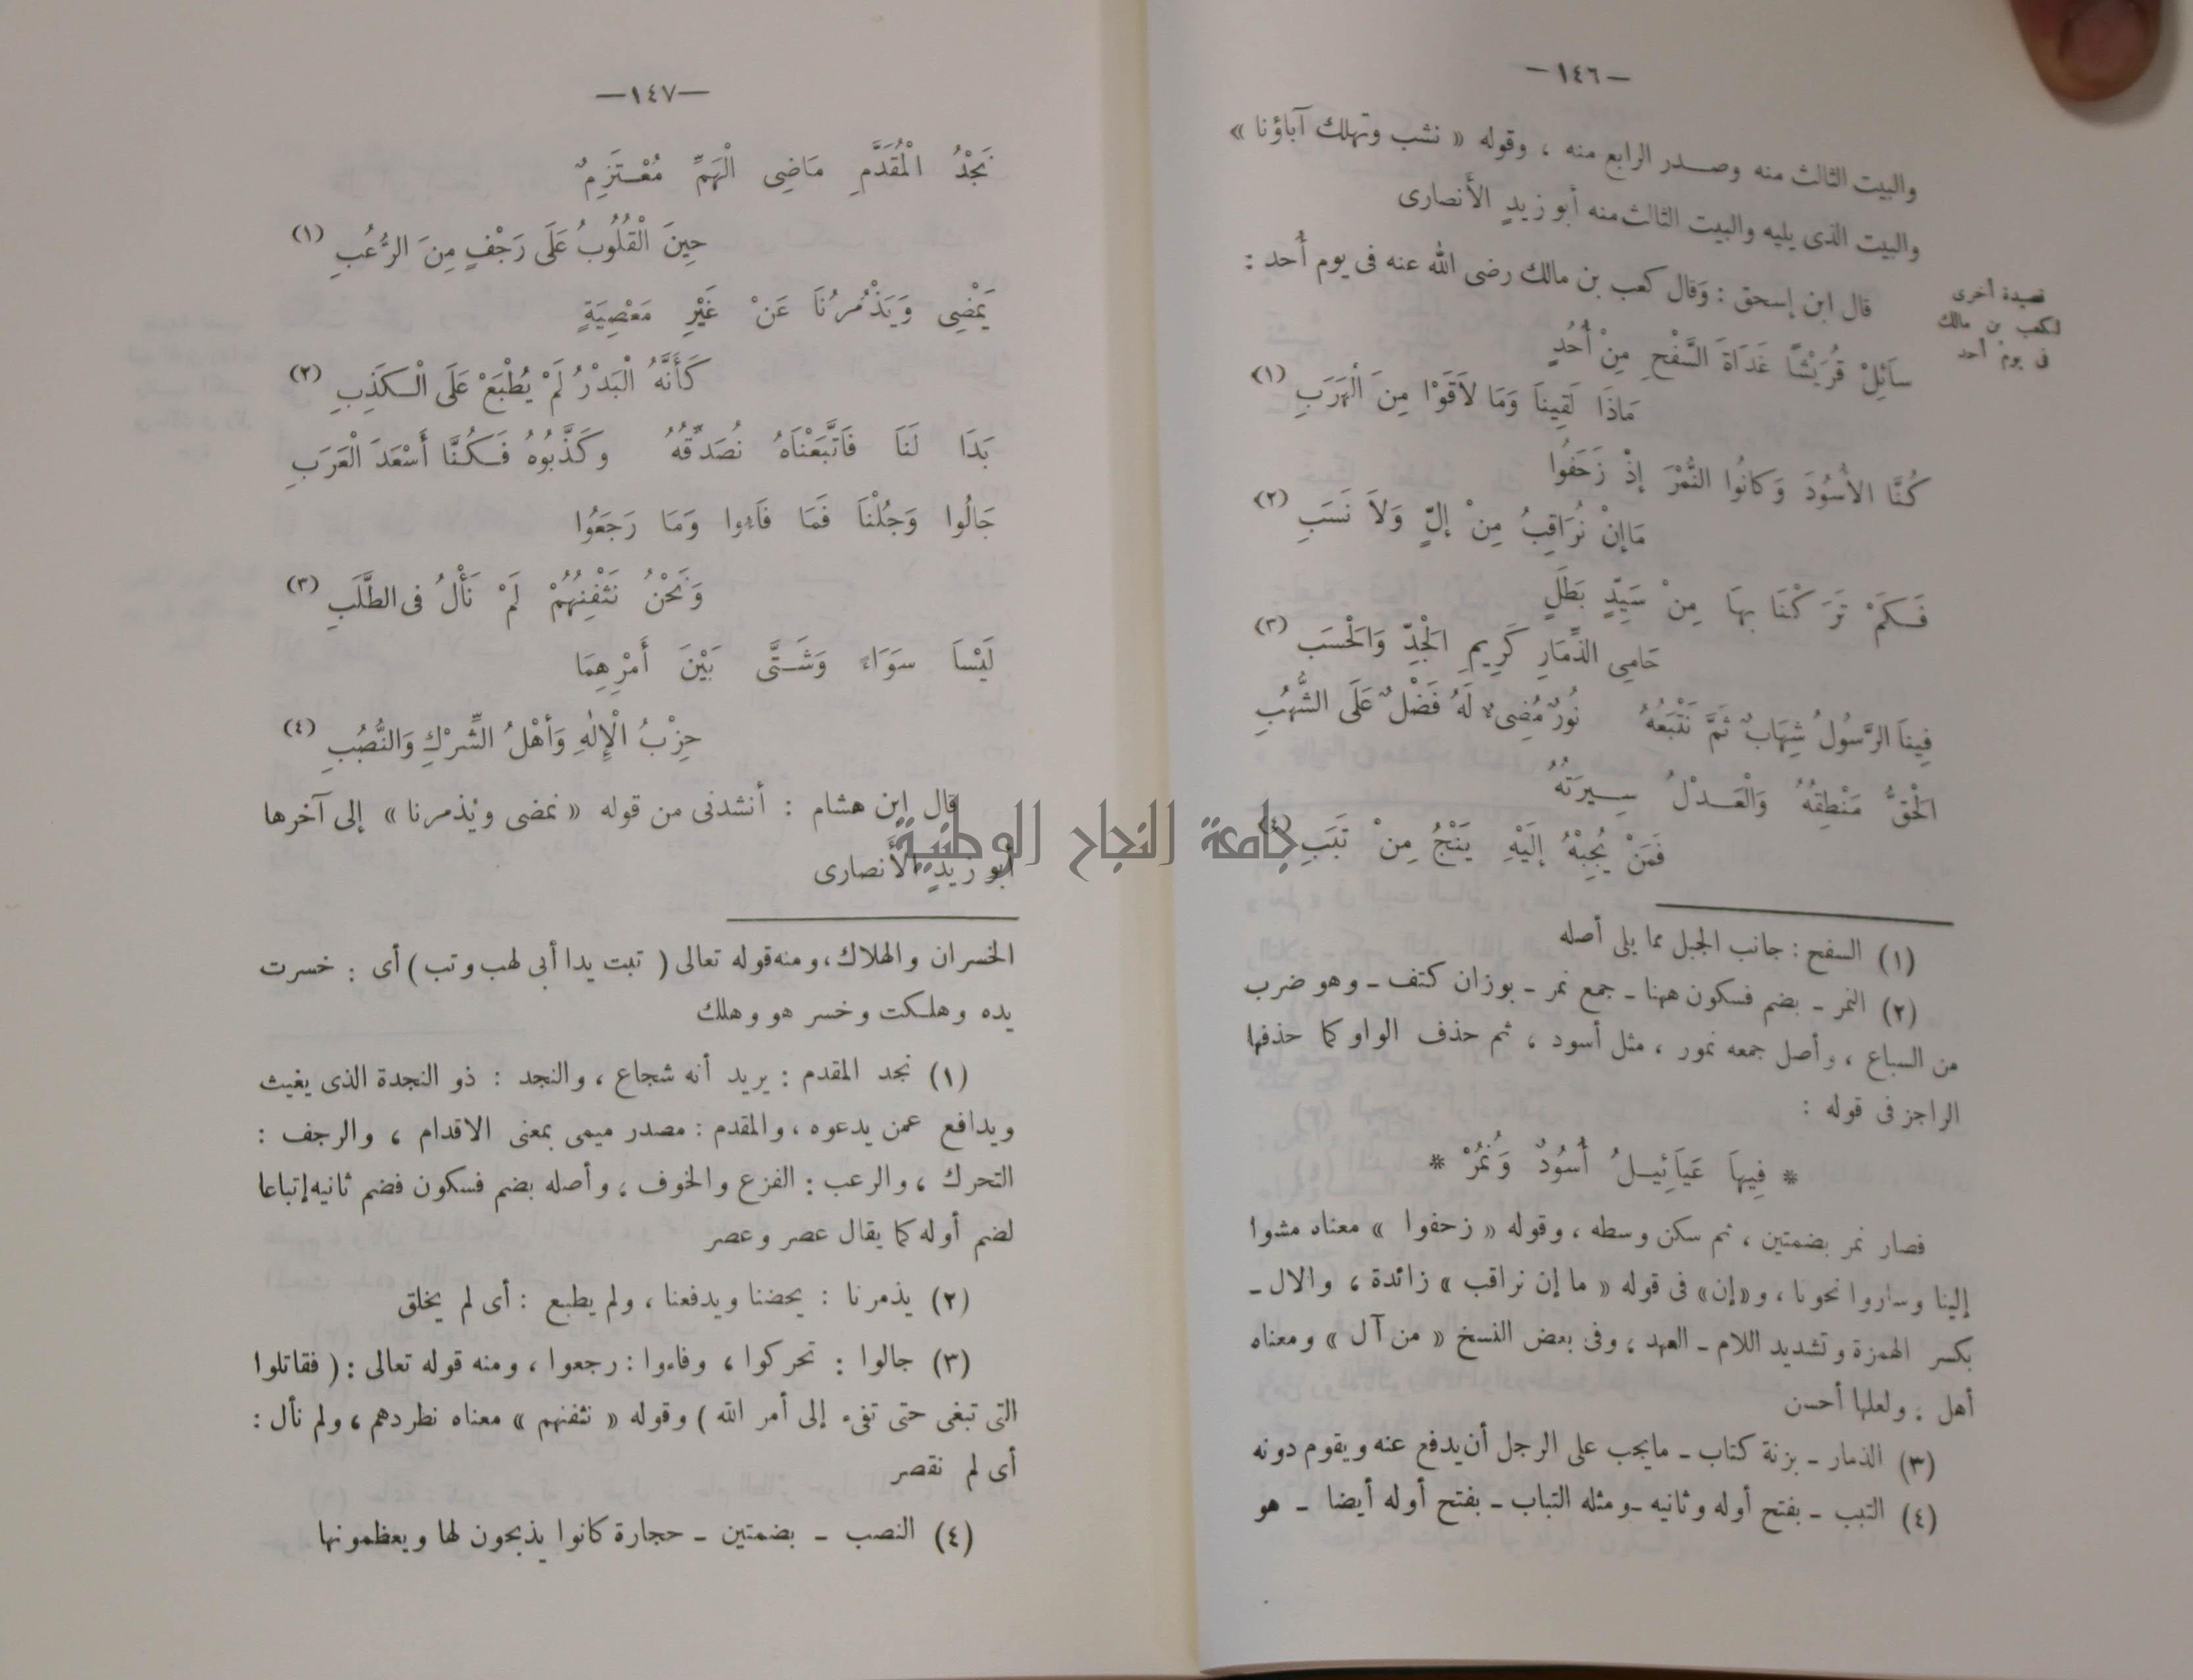 —١٤٦—
والبيت الثالث منه وصدر الرابع منه ، وقوله « نشب وتهلك آباؤنا »
والبيت الذى يليه والبيت الثالث منه أبو زيدٍ الأنصارى
قال ابن إسحق : وَقال كعب بن مالك رضى الله عنه فى يوم أُحد :
قصيدة أخرى
لكعب بن مالك
فى يوم أحد
سَائِلْ قُرَيْشًا غَدَاةَ السَّفْحِ مِنْ أُحُدٍ
مَاذَا لَقِينَا وَمَا لاَقَوْا مِنَ الْهَرَبِ (١)
كُنَّا الأُسُودَ وَكَانُوا النُّمْرَ إِذْ زَحَفُوا
مَاإِنْ نُرَاقِبُ مِنْ إِلٍّ وَلاَ نَسَبِ (٢)
فَكَمْ تَرَكْنَا بِهَا مِنْ سَيِّدٍ بَطَلٍ
حَامِى الذِّمَارِ كَرِيمِ الْجَدِّ وَالْحَسَبِ (٣)
فِينَا الرَّسُولُ شِهَابٌ ثَمَّ نَتْبَعُهُ نُورٌ مُضِىءٌ لَهُ فَضْلٌ عَلَى الشُّهُبِ
الْحَقُّ مَنْطِقُهُ وَالْعَدْلُ سِيرَتُهُ
فَمَنْ يُجِبْهُ إِلَيْهِ يَنْجُ مِنْ تَبَبِ (٤)
(١) السفح : جانب الجبل مما يلى أصله
(٢) النمر ـ بضم فسكون ههنا ـ جمع نمر ـ بوزان كتف ـ وهو ضرب
من السباع ، وأصل جمعه نمور ، مثل أسود ، ثم حذف الواو كما حذفها
الراجز فى قوله :
* فِيهَا عَيَائِيلُ أُسُودٌ وَنُمُرْ *
فصار نمر بضمتين ، ثم سكن وسطه ، وقوله « زحفوا » معناه مشوا
إلينا وساروا نحونا ، و«إن» فى قوله « ما إن نراقب » زائدة ، والال ـ
بكسر الهمزة وتشديد اللام ـ العهد ، وفى بعض النسخ « من آل » ومعناه
أهل ، ولعلها أحسن
(٣) الذمار ـ بزنة كتاب ـ مايجب على الرجل أن يدفع عنه ويقوم دونه
(٤) التبب ـ بفتح أوله وثانيه ـ ومثله التباب ـ بفتح أوله أيضا ـ هو
—١٤٧—
نَجْدُ الْمُقَدَّمِ مَاضِى الْهَمِّ مُعْتَزِمٌ
حِينَ الْقُلُوبُ عَلَى رَجْفٍ مِنَ الرُّعُبِ (١)
يَمْضِى وَيَذْمُرُنَا عَنْ غَيْرِ مَعْصِيَةٍ
كَأَنَّهُ الْبَدْرُ لَمْ يُطْبَعْ عَلَى الْكَذِبِ (٢)
بَدَا لَنَا فَاتَّبَعْنَاهُ نُصَدِّقُهُ وَكَذَّبُوهُ فَكُنَّا أَسْعَدَ الْعَرَبِ
جَالُوا وَجُلْنَا فَمَا فَاءُوا وَمَا رَجَعُوا
وَنَحْنُ نَثْفِنُهُمْ لَمْ نَأْلُ فى الطَّلَبِ (٣)
لَيْسَا سَوَاءً وَشَتَّى بَيْنَ أَمْرِهِمَا
حِزْبُ الْإِلٰهِ وَأَهْلُ الشِّرْكِ وَالنُّصُبِ (٤)
قال ابن هشام : أنشدنى من قوله « نمضى ويذمرنا » إلى آخرها
أبو زيدٍ الأنصارى
جامعة النجاح الوطنية
الخسران والهلاك، ومنه قوله تعالى ( تبت يدا أبى لهب وتب ) أى : خسرت
يده وهلكت وخسر هو وهلك
(١) نجد المقدم : يريد أنه شجاع ، والنجد : ذو النجدة الذى يغيث
ويدافع عمن يدعوه ، والمقدم : مصدر ميمى بمعنى الاقدام ، والرجف :
التحرك ، والرعب : الفزع والخوف ، وأصله بضم فسكون فضم ثانيه إتباعا
لضم أوله كما يقال عصر وعصر
(٢) يذمرنا : يحضنا ويدفعنا ، ولم يطبع : أى لم يخلق
(٣) جالوا : تحركوا ، وفاءوا : رجعوا ، ومنه قوله تعالى : ( فقاتلوا
التى تبغى حتى تفىء إلى أمر الله ) وقوله « نثفنهم » معناه نطردهم ، ولم نأل :
أى لم نقصر
(٤) النصب ـ بضمتين ـ حجارة كانوا يذبحون لها ويعظمونها